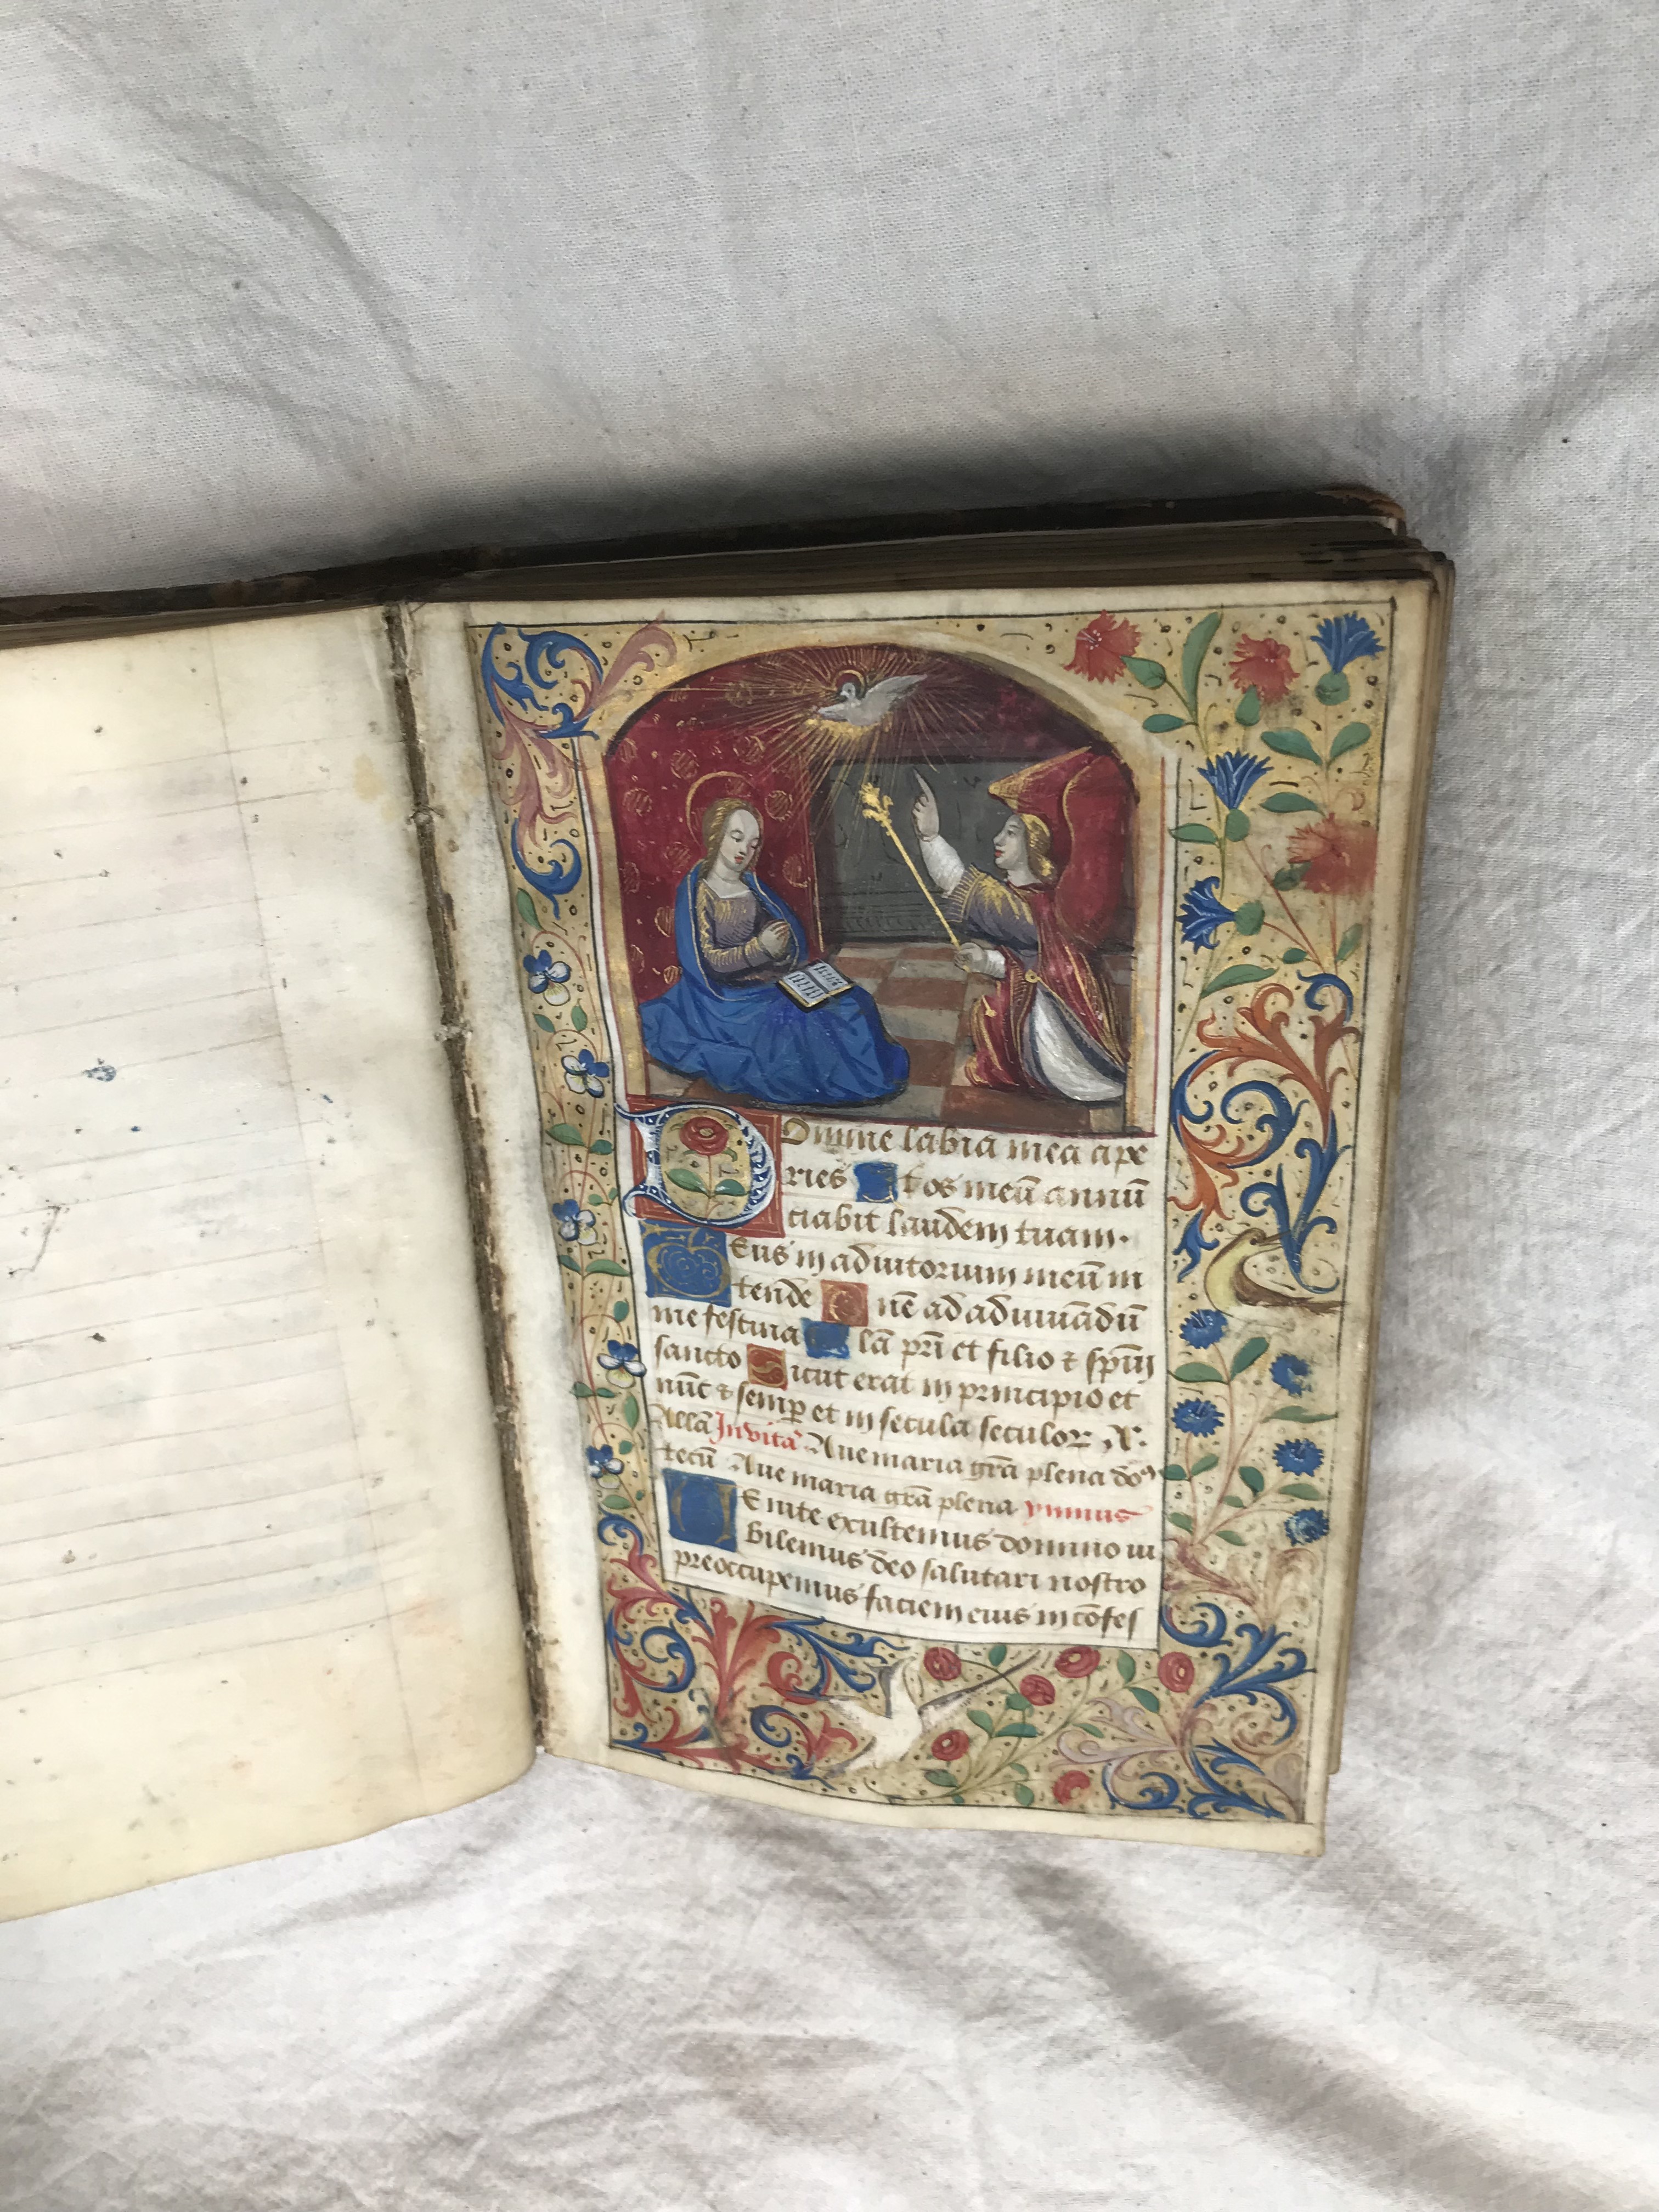 Domine labia mea ape
ries Et os meū annū
ciabit laudem tuam.
Deus in adiutorium meū in
tende Dne ad adiuuādū
me festina Gla pri et filio et spiui
sancto Sicut erat in principio et
nūc et semp et in secula seculoꝝ A.
Allā Inuita Aue maria grā plena doꝰ
tecū Aue maria grā plena ymnus
Uenite exultemus domino iu
bilemus deo salutari nostro
preoccupemus faciem eius in cōfes